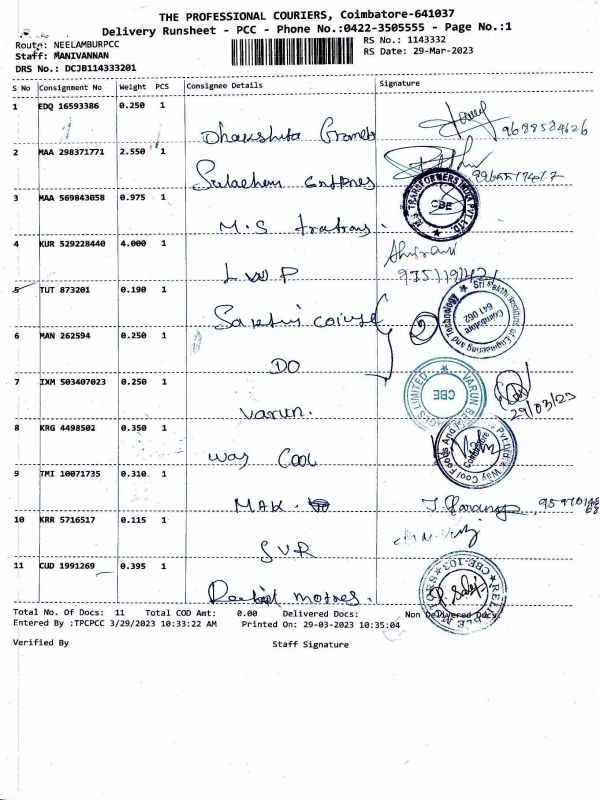 THE PROFESSIONAL COURIERS, Coimbatore-641037
Delivery Runsheet - PCC - Phone No.:0422-3505555 - Page No.:1
Route: NEELAMBURPCC
RS No.: 1143332
Staff: MANIVANNAN
RS Date: 29-Mar-2023
DRS No.: DCJB114333201
S No Consignment No Weight PCS Consignee Details Signature
1 EDQ 16593386 0.250 1
2 MAA 298371771 2.550 1
3 MAA 569843058 0.975 1
M.S
4 KUR 529228440 4.000 1
LWP
5 TUT 873201 0.190 1
Sakthi
2
6 MAN 262594 0.250 1
DO
7 IXM 503407023 0.250 1
Varun.
29/03/23
8 KRG 4498502 0.350 1
Way Cool
9 TMI 10071735 0.310 1
MAK.
10 KRR 5716517 0.115 1
SVR
11 CUD 1991269 0.395 1
motors.
M.S TRANSFORMERS INDIA PVT. LTD.
CBE
Sri Sakthi Institute of Engineering and Technology
Coimbatore
641 062
LIMITED
VARUN
CBE
Way Cool Foods And Pvt Ltd
Coimbatore
CBE-103
Total No. Of Docs: 11 Total COD Amt: 0.00 Delivered Docs: Non Delivered Docs:
Entered By :TPCPCC 3/29/2023 10:33:22 AM Printed On: 29-03-2023 10:35:04
Verified By Staff Signature